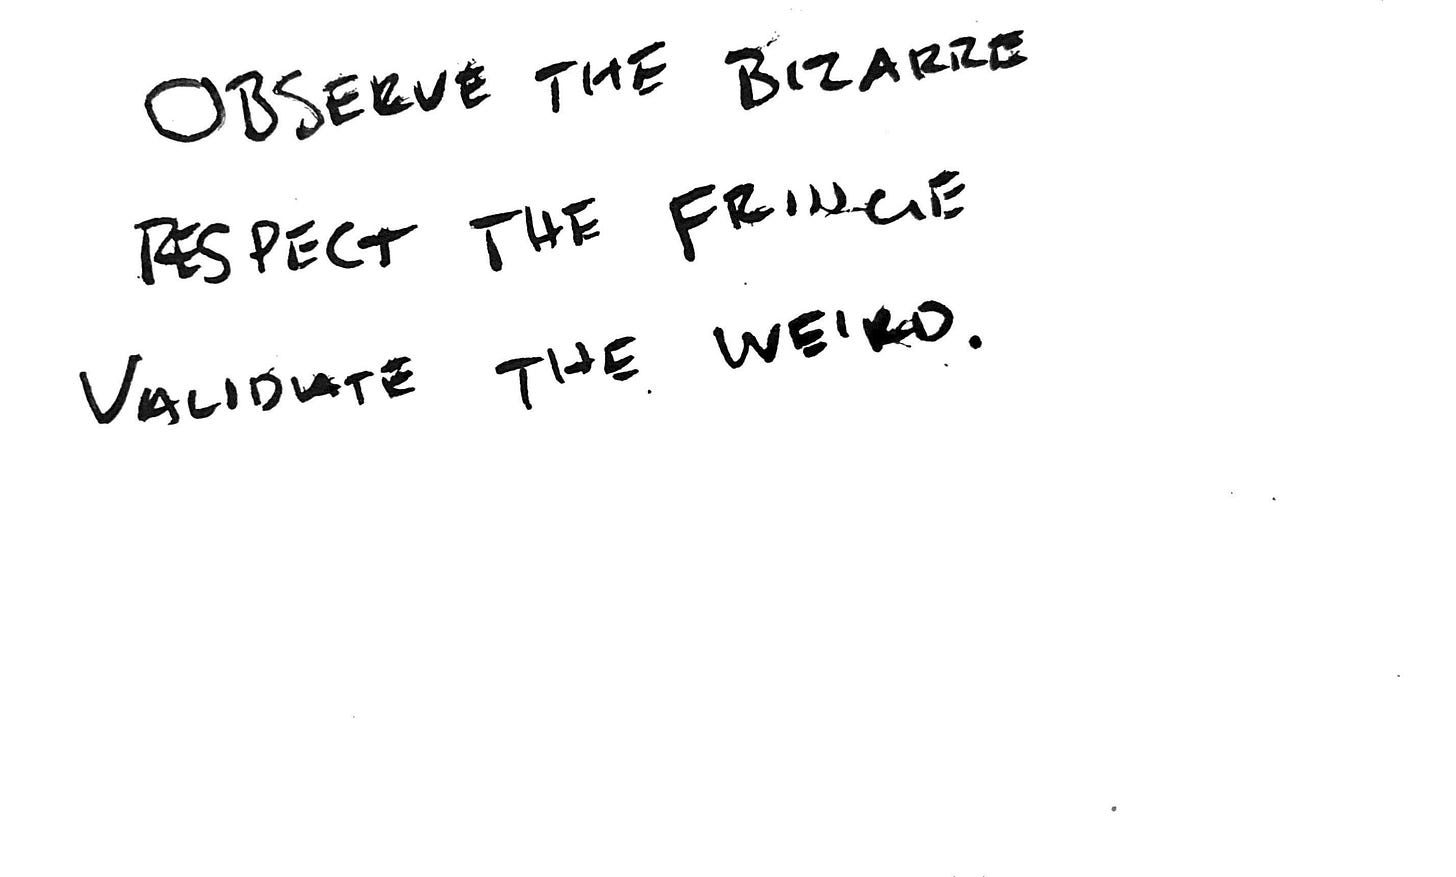 OBSERVE THE BIZARRE
RESPECT THE FRINGE
VALIDATE THE WEIRD.